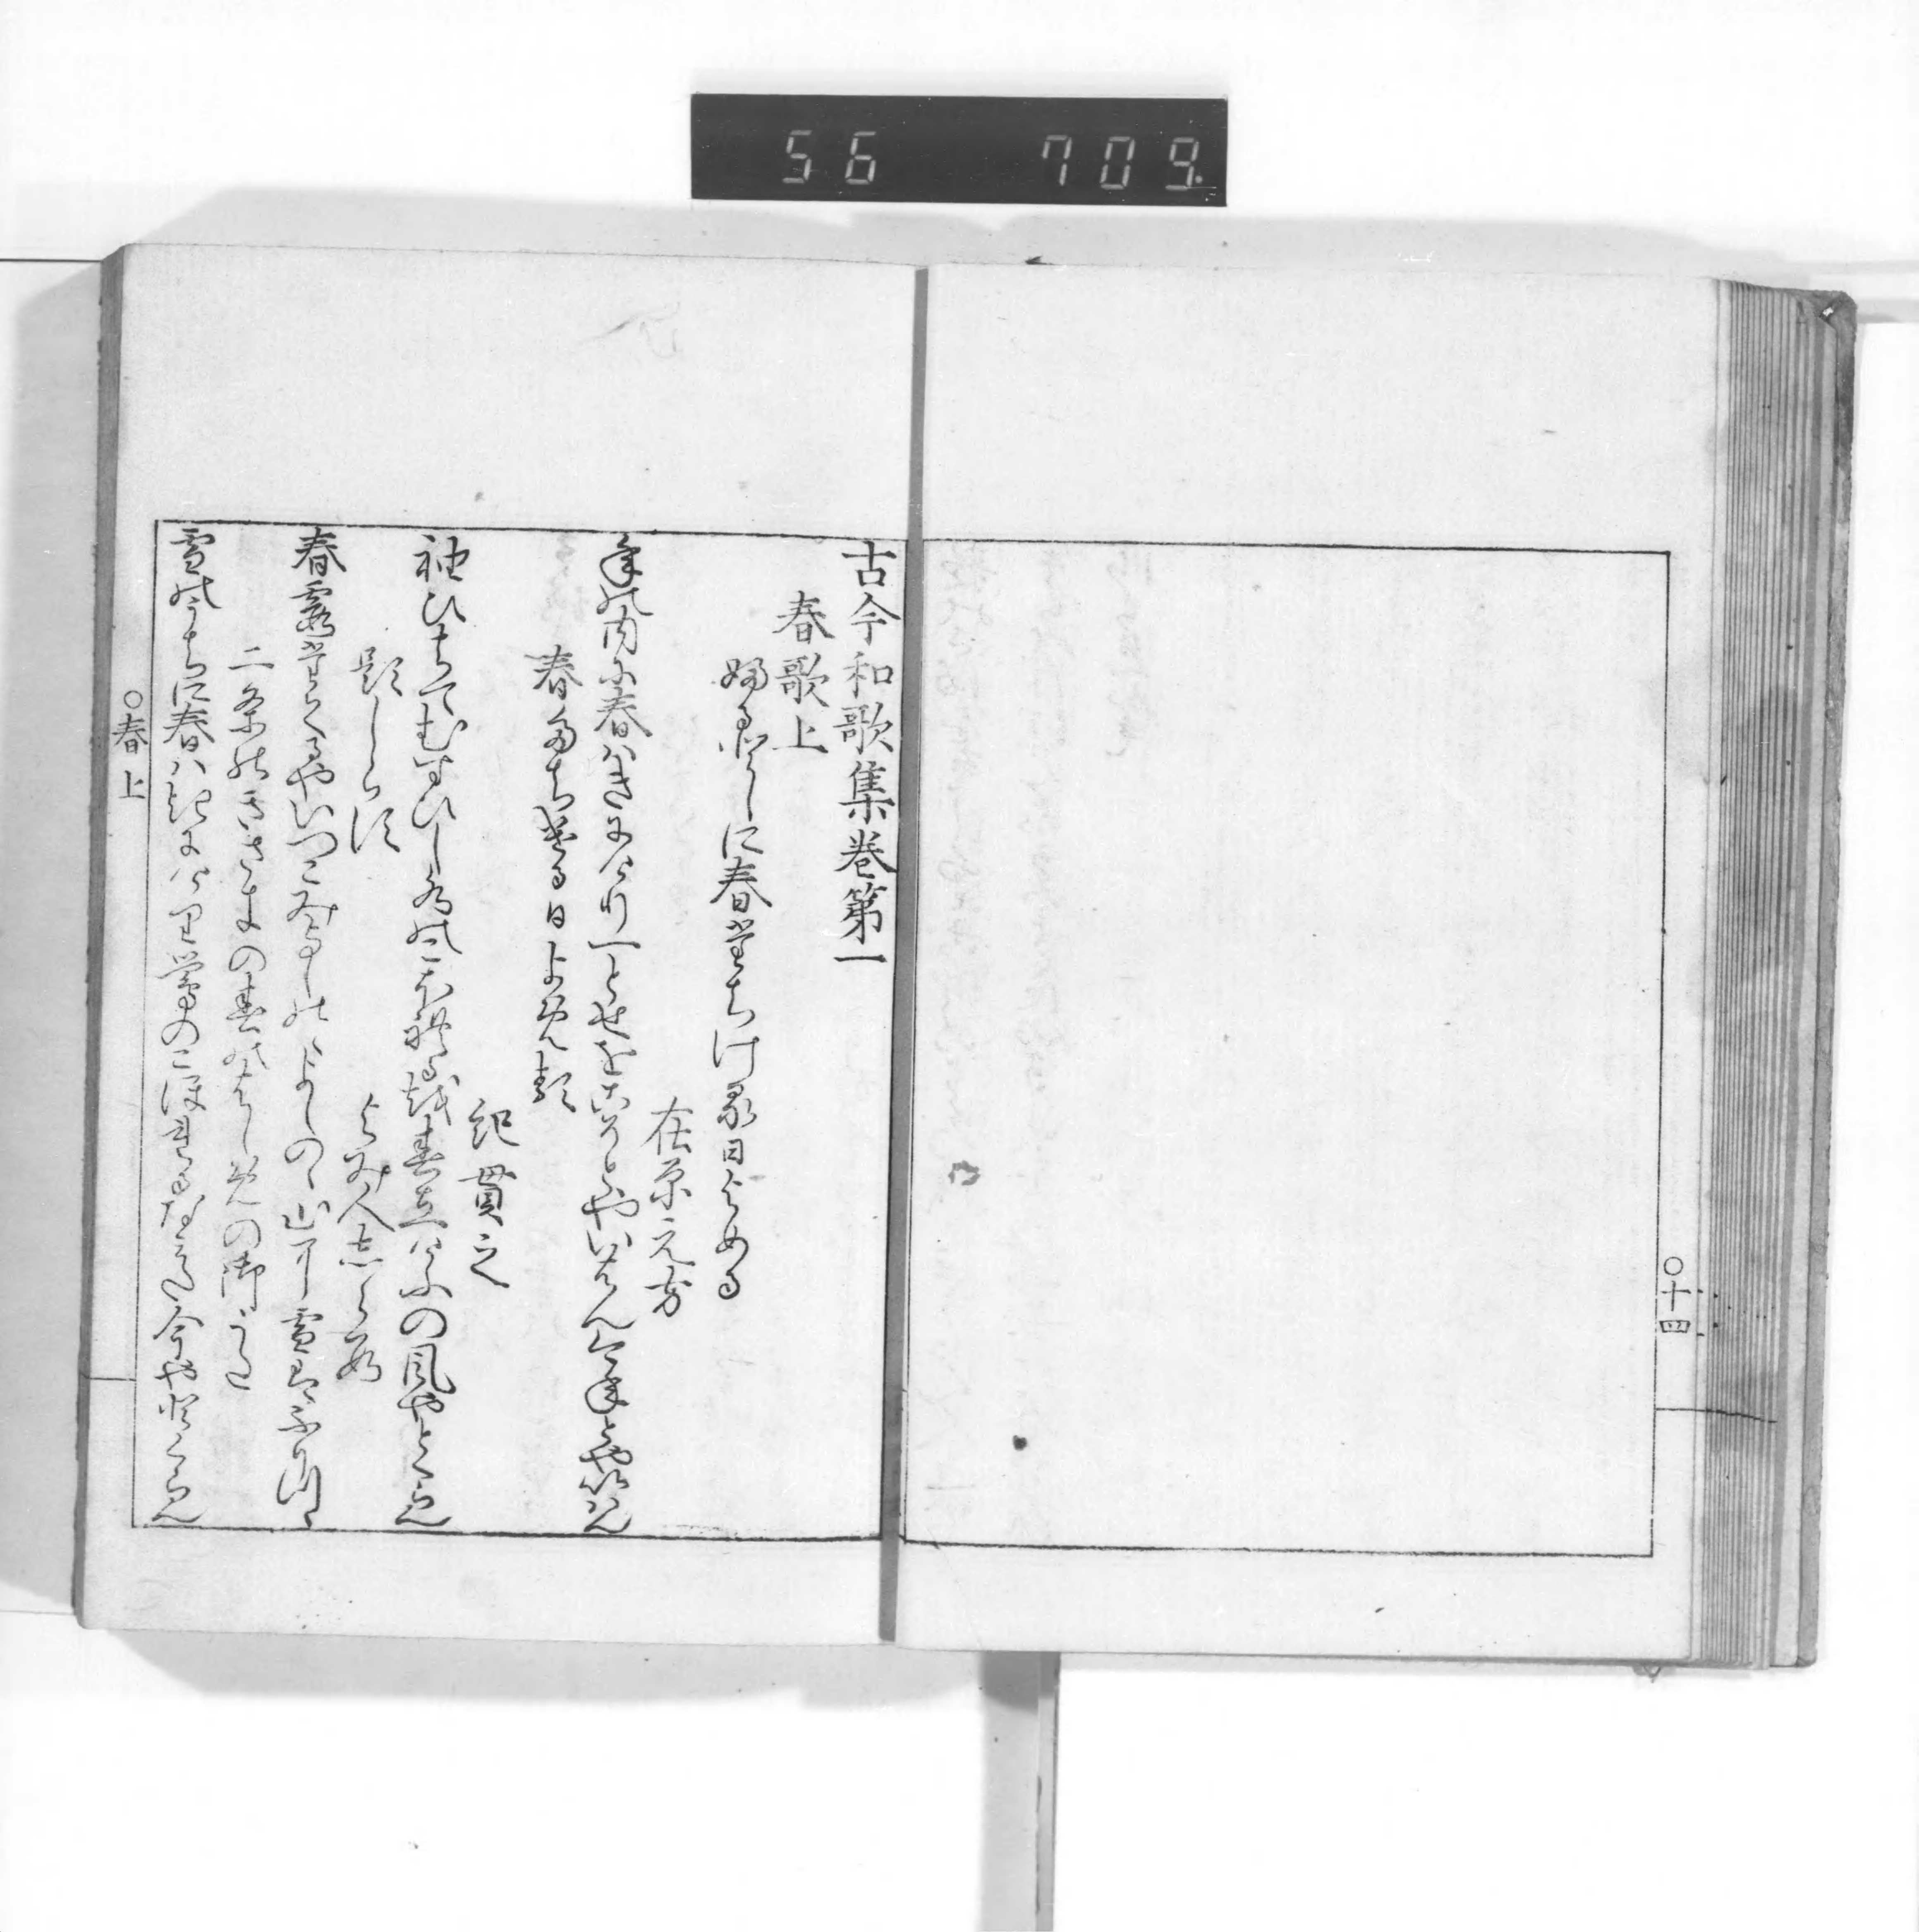 56 709.
古今和歌集巻第一
春歌上
ふるとしに春たちける日よめる
在原元方
年の内に春はきにけり一とせをこそとやいはんことしとやいはん
春たちける日よめる
紀貫之
袖ひちてむすひし水のこほれるを春立けふの風やとくらん
題しらす
よみ人しらす
春霞たてるやいつこみよしのゝよしのゝ山に雪はふりつゝ
二条のきさきの春のはしめの御うた
雪のうちに春はきにけり鶯のこほれるなみた今やとくらん
○春上
○十四